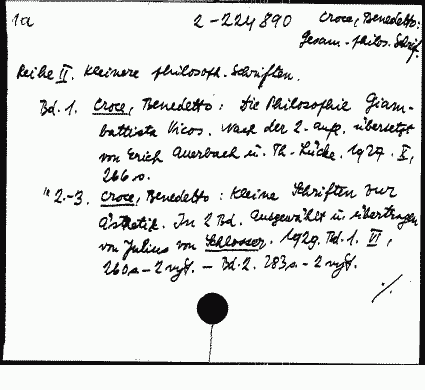 1a 2-224890 Croce, Benedetto:
Gesam.-philos. Schrif.
Reihe II. Kleinere philosoph. Schriften.
Bd. 1. Croce, Benedetto: Die Philosophie Giam-
battista Vicos. Nach der 2. Aufl. übersetzt
von Erich Auerbach u. Th. Lücke. 1927. X,
266 s.
" 2.-3. Croce, Benedetto: Kleine Schriften zur
Ästhetik. In 2 Bd. Ausgewählt u. übertragen
von Julius von Schlosser. 1929. Bd. 1. VI,
260 s. - 2 - Bd. 2. 283 s. - 2
./.